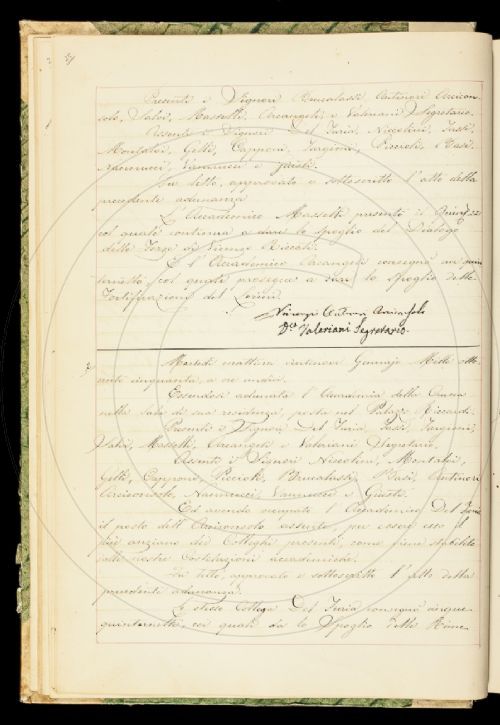 Presenti i Signori Brucalassi, Antinori Arcicon-
solo, Salvi, Massetti, Arcangeli e Valeriani Segretario.
Assenti i Signori Del Furia, Niccolini, Fiaschi,
Montalvi, Gelli, Capponi, Targioni, Piccioli, Basi,
Nannucci, Vannucci e Giusti.
Fu letto, approvato e sottoscritto l'atto della
precedente adunanza.
L'Accademico Massetti presentò il
col quale continua a dare lo spoglio del Dialogo
delle Forze di
E l'Accademico Arcangeli consegnò un quin-
ternetto, col quale prosegue a dare lo spoglio delle
Fortificazioni del Lorini.
Antinori Arciconsolo
D.r Valeriani Segretario.
Martedì mattina ventinove Gennaio Mille otto-
cento cinquanta, a ore undici.
Essendosi adunata l'Accademia della Crusca
nella sala di sua residenza, posta nel Palazzo Riccardi.
Presenti i Signori Del Furia, Targioni,
Salvi, Massetti, Arcangeli e Valeriani Segretario.
Assenti i Signori Niccolini, Montalvi,
Gelli, Capponi, Piccioli, Brucalassi, Basi, Antinori
Arciconsolo, Nannucci, Vannucci e Giusti.
Ed avendo occupato l'Accademico Del Furia
il posto dell'Arciconsolo assente, per essere esso il
più anziano dei Colleghi presenti, come viene stabilito
dalle nostre Costituzioni accademiche.
Fu letto, approvato e sottoscritto l'atto della
precedente adunanza.
Lo stesso Collega Del Furia consegnò cinque
quinternetti, coi quali dà lo Spoglio delle Rime